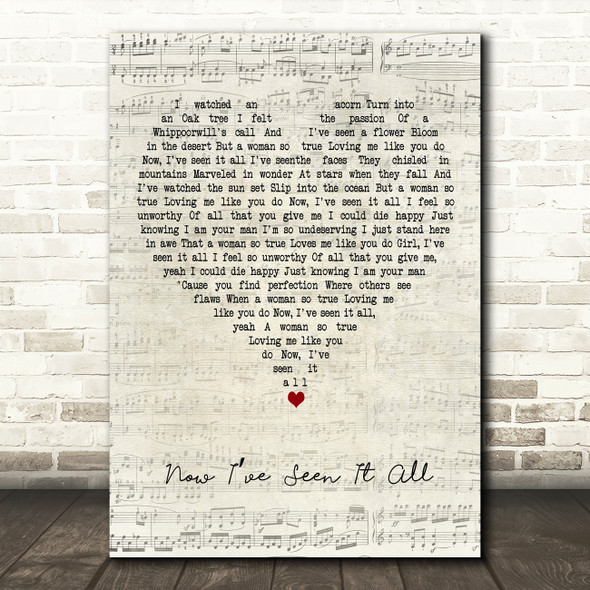 I watched an acorn Turn into
an Oak tree I felt the passion Of a
Whippoorwill's call And I've seen a flower Bloom
in the desert But a woman so true Loving me like you do
Now, I've seen it all I've seenthe faces They chisled in
mountains Marveled in wonder At stars when they fall And
I've watched the sun set Slip into the ocean But a woman so
true Loving me like you do Now, I've seen it all I feel so
unworthy Of all that you give me I could die happy Just
knowing I am your man I'm so undeserving I just stand here
in awe That a woman so true Loves me like you do Girl, I've
seen it all I feel so unworthy Of all that you give me,
yeah I could die happy Just knowing I am your man
'Cause you find perfection Where others see
flaws When a woman so true Loving me
like you do Now, I've seen it all,
yeah A woman so true
Loving me like you
do Now, I've
seen it
all
Now I've Seen It All